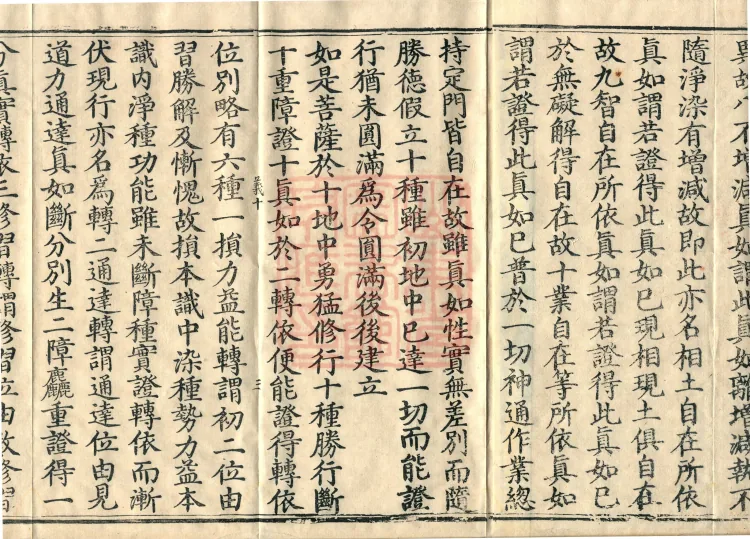 異故八不增減真如謂此真如離增減執不
隨淨染有增減故即此亦名相土自在所依
真如謂若證得此真如已現相現土俱自在
故九智自在所依真如謂若證得此真如已
於無礙解得自在故十業自在等所依真如
謂若證得此真如已普於一切神通作業總
持定門皆自在故雖真如性實無差別而隨
勝德假立十種雖初地中已達一切而能證
行猶未圓滿為令圓滿後後建立
如是菩薩於十地中勇猛修行十種勝行斷
十重障證十真如於二轉依便能證得轉依
義十 三
位別略有六種一損力益能轉謂初二位由
習勝解及慚愧故損本識中染種勢力益本
識內淨種功能雖未斷障種實證轉依而漸
伏現行亦名為轉二通達轉謂通達位由見
道力通達真如斷分別生二障麤重證得一
分真實轉依三修習轉謂修習位由數修習